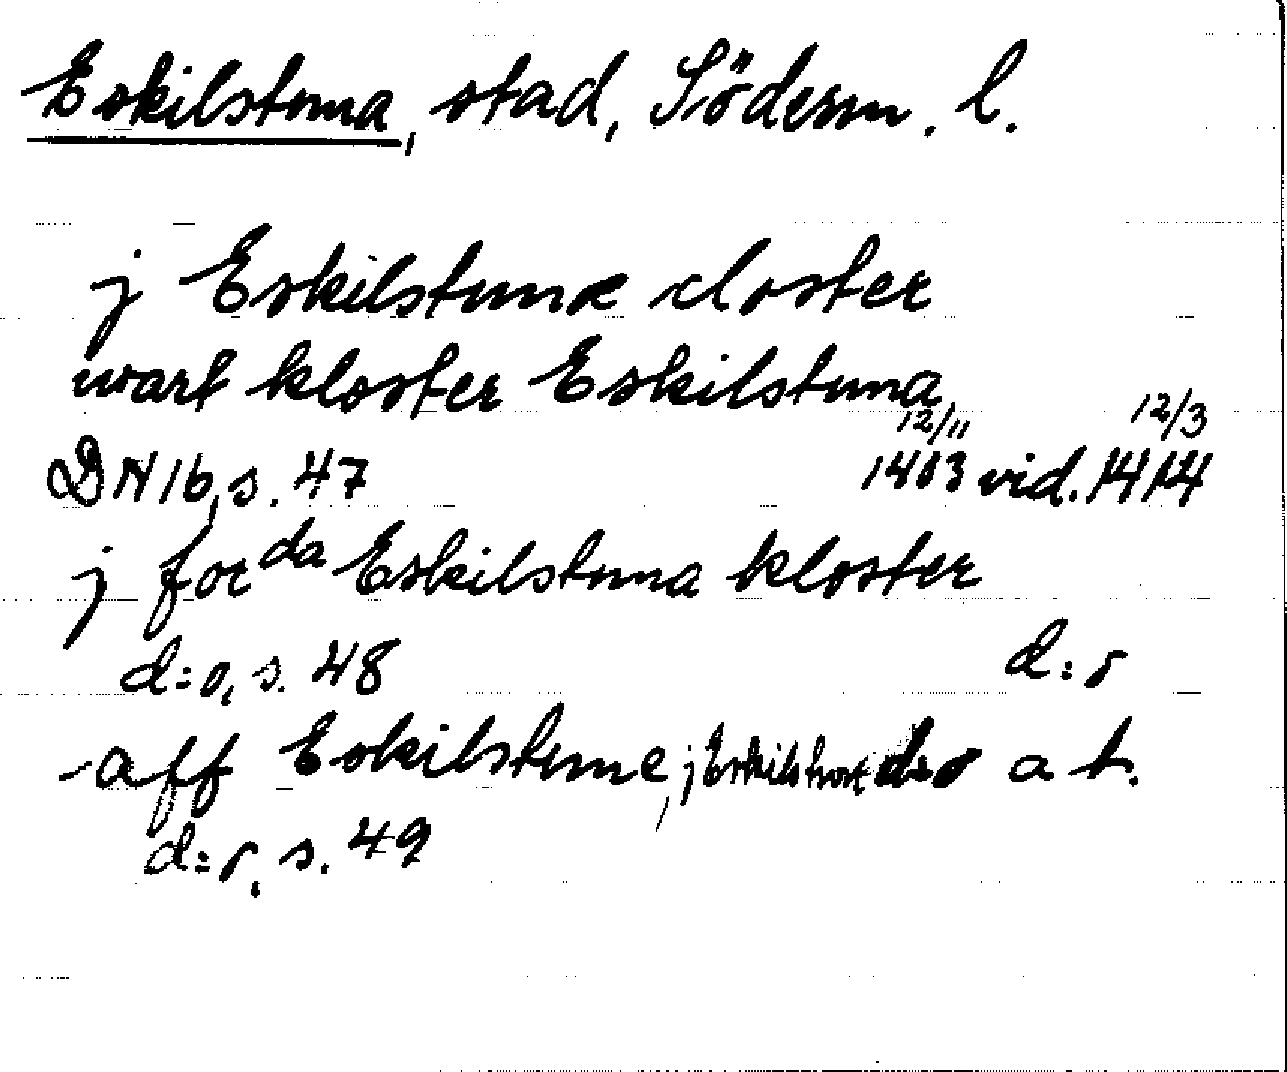 Eskilstuna, stad, Söderm. l.
j Eskilstunæ closter
wart kloster Eskilstuna
12/11 12/3
DN 16, s. 47 1403 vid. 1414
j for da Eskilstuna kloster
d:o, s. 48 d:o
aff Eskilstune, j Eskilstuna d:o a t.
d:o, s. 49